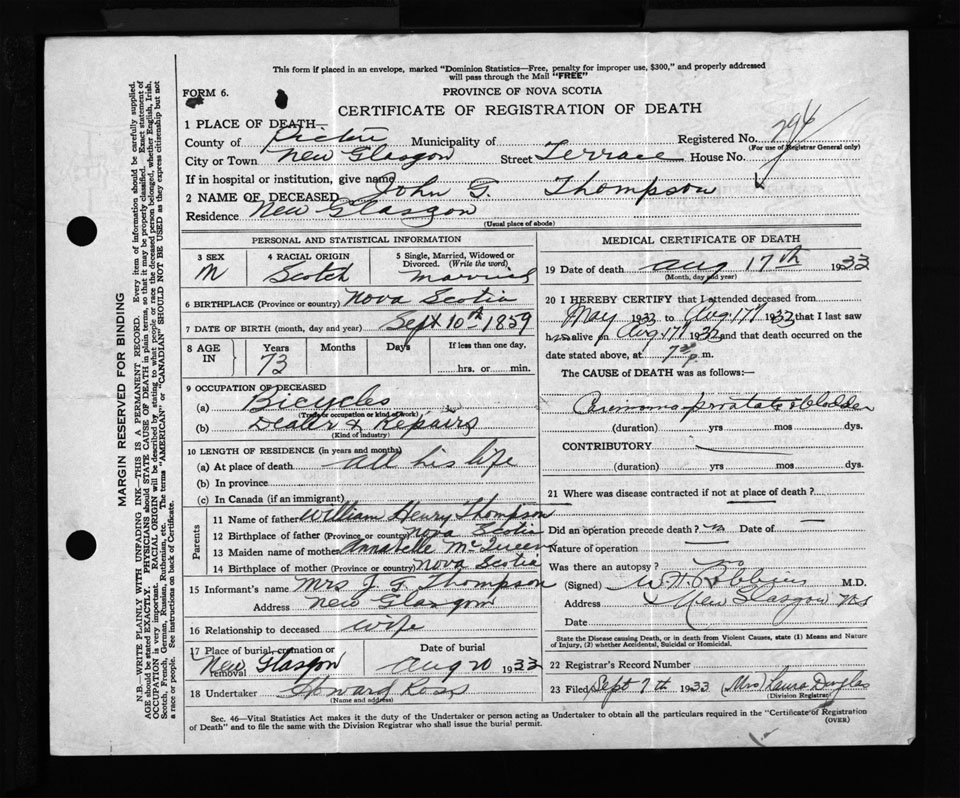 This form if placed in an envelope, marked "Dominion Statistics—Free, penalty for improper use, $300," and properly addressed
will pass through the Mail "FREE"
FORM 6.
PROVINCE OF NOVA SCOTIA
CERTIFICATE OF REGISTRATION OF DEATH
1 PLACE OF DEATH—
County of Pictou Municipality of Registered No. 296
(For use of Registrar General only)
City or Town New Glasgow Street Terrace House No.
If in hospital or institution, give name
2 NAME OF DECEASED John G. Thompson
Residence New Glasgow
(Usual place of abode)
PERSONAL AND STATISTICAL INFORMATION
3 SEX 4 RACIAL ORIGIN 5 Single, Married, Widowed or Divorced. (Write the word)
M Scotch Married
6 BIRTHPLACE (Province or country) Nova Scotia
7 DATE OF BIRTH (month, day and year) Sept 10th 1859
8 AGE IN Years Months Days If less than one day.
73 hrs. or min.
9 OCCUPATION OF DECEASED
(a) Bicycles
(Trade or occupation or kind of work)
(b) Dealer & Repairs
(Kind of industry)
10 LENGTH OF RESIDENCE (in years and months)
(a) At place of death all his life
(b) In province
(c) In Canada (if an immigrant)
Parents
11 Name of father William Henry Thompson
12 Birthplace of father (Province or country) Nova Scotia
13 Maiden name of mother Annabelle McQueen
14 Birthplace of mother (Province or country) Nova Scotia
15 Informant's name Mrs J. G. Thompson
Address New Glasgow
16 Relationship to deceased wife
17 Place of burial, cremation or removal Date of burial
New Glasgow Aug 20 1933
18 Undertaker Howard Ross
(Name and address)
MEDICAL CERTIFICATE OF DEATH
19 Date of death Aug 17th 1933
(Month, day and year)
20 I HEREBY CERTIFY that I attended deceased from
May 1933 to Aug. 17th 1933 that I last saw
h alive on Aug 17th 1933 and that death occurred on the
date stated above, at 7 p.m.
The CAUSE of DEATH was as follows:—
Carcinoma prostate & bladder
(duration) yrs mos dys.
CONTRIBUTORY
(duration) yrs mos dys.
21 Where was disease contracted if not at place of death?
Did an operation precede death? no Date of
Nature of operation
Was there an autopsy? no
(Signed) W. H. Robbins M.D.
Address New Glasgow N.S.
Date
State the Disease causing Death, or in death from Violent Causes, state (1) Means and Nature
of Injury, (2) whether Accidental, Suicidal or Homicidal.
22 Registrar's Record Number
23 Filed Sept 7th 1933 (Mrs) Laura Douglas
(Division Registrar)
Sec. 46—Vital Statistics Act makes it the duty of the Undertaker or person acting as Undertaker to obtain all the particulars required in the "Certificate of Registration
of Death" and to file the same with the Division Registrar who shall issue the burial permit.
(OVER)
MARGIN RESERVED FOR BINDING
N.B.—WRITE PLAINLY WITH UNFADING INK—THIS IS A PERMANENT RECORD. Every item of information should be carefully supplied.
AGE should be stated EXACTLY. PHYSICIANS should STATE CAUSE OF DEATH in plain terms, so that it may be properly classified. Exact statement of
OCCUPATION is very important. RACIAL ORIGIN will be described by stating to what people or race the deceased person belonged, whether English, Irish,
Scotch, French, German, Russian, Ruthenian, etc. The terms "AMERICAN" or "CANADIAN" SHOULD NOT BE USED as they express citizenship but not
a race or people. See instructions on back of Certificate.